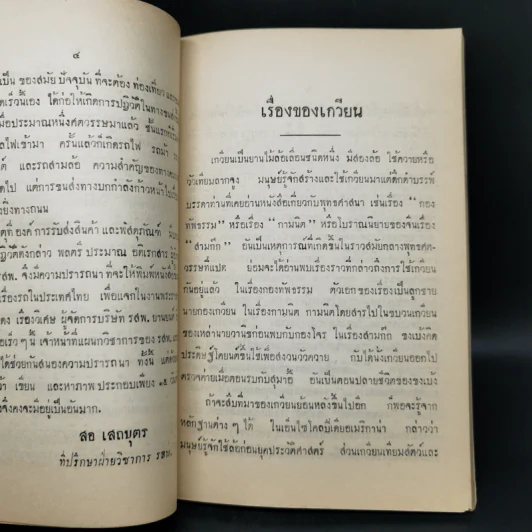 ๔
เป็น ของสมัย ปัจจุบัน ที่จะต้อง ท่องเที่ยว
ได้ก่อให้เกิดการปฏิวัติในทางขนส่ง
เมื่อประมาณหนึ่งศตวรรษมาแล้ว ชั้นแรกก็
รถไฟเข้ามา ครั้นแล้วก็เกิดรถไฟ รถม้า
และรถสามล้อ ความสำคัญของทาง
ไป แต่การขนส่งทางบกกำลังก้าวหน้า
ยิ่งทางถนน
ที่องค์การรับส่งสินค้า และพัสดุภัณฑ์
ปฏิวัติดังกล่าว พลตรี ประมาณ อดิเรกสาร
รสพ. จึงมีความปรารถนา ที่จะให้พิมพ์หนังสือ
เรื่องรถในประเทศไทย เพื่อแจกในงาน
เรืองวิเศษ ผู้จัดการบริษัท รสพ. ยานยนต์
เร็ว ๆ นี้ เจ้าหน้าที่แผนกวิชาการ ของ รสพ.
ได้ช่วยกันสนองความปรารถนา ทั้งนี้ แต่
เขียน และหาภาพ ประกอบเพียง ๑๕ วัน
จึงคงจะมีอยู่เป็นอันมาก.
สอ เสถบุตร
ที่ปรึกษาฝ่ายวิชาการ รสพ.
เรื่องของเกวียน
เกวียนเป็นยานไม้ล้อเลื่อนชนิดหนึ่ง มีสองล้อ ใช้ควายหรือ
วัวเทียมลากจูง มนุษย์รู้จักสร้างและใช้เกวียนมาแต่ดึกดำบรรพ์
บรรดาท่านที่เคยอ่านหนังสือเกี่ยวกับพุทธศาสนา เช่นเรื่อง "กอง
ทัพธรรม" หรือเรื่อง "กามนิต" หรือโบราณนิยายของจีนเรื่อง
"สามก๊ก" อันเป็นเหตุการณ์ที่เกิดขึ้นในราวสมัยกลางพุทธศต-
วรรษที่แปด ย่อมจะได้อ่านพบเรื่องราวที่กล่าวถึงการใช้เกวียน
กันอยู่แล้ว ในเรื่องกองทัพธรรม ตัวเอกของเรื่องเป็นลูกชาย
นายกองเกวียน ในเรื่องกามนิต กามนิตโดยสารไปในขบวนเกวียน
ของเหล่านายวานิชก่อนพบกับกองโจร ในเรื่องสามก๊ก ขงเบ้งคิด
ประดิษฐ์โคยนต์ขึ้นใช้เพื่อสงวนวัวควาย กับได้นั่งเกวียนออกไป
ตรวจค่ายเมื่อตอนรบกับสุมาอี้ อันเป็นตอนปลายชีวิตของขงเบ้ง
ถ้าจะสืบที่มาของเกวียนย้อนหลังขึ้นไปอีก ก็พอจะรู้จาก
หลักฐานต่าง ๆ ได้ ในเอ็นไซโคลปีเดียอเมริกานา กล่าวว่า
มนุษย์รู้จักใช้ล้อก่อนยุคประวัติศาสตร์ ส่วนเกวียนเทียมสัตว์และ